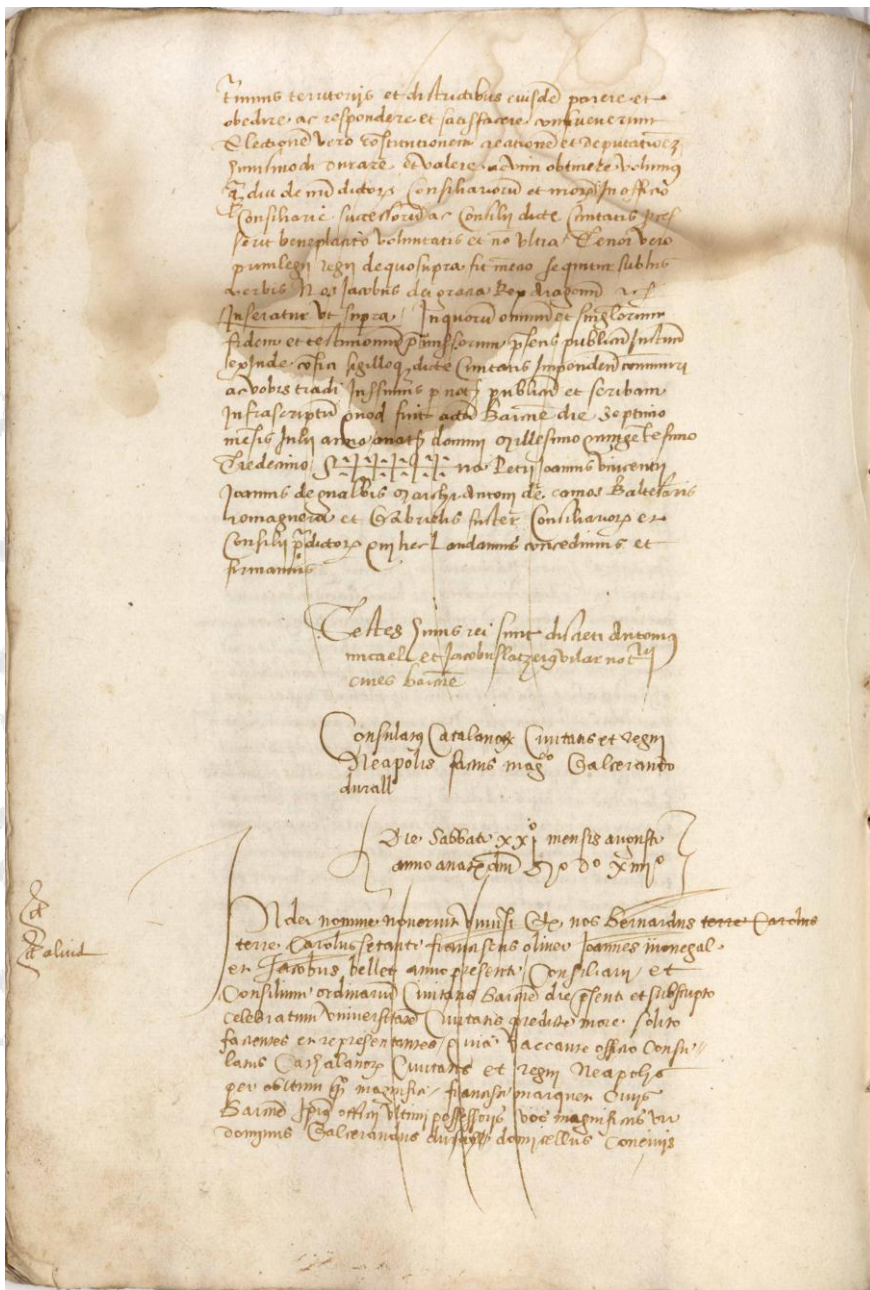 terminis territorijs et districtibus eiusdē parere et
obedire ac respondere et satisfacere consueuerunt
Electionē vero constitutionem creationē et deputationē
huiusmodi durare et valere ac vim obtinere volumus
diu de nrā dictoꝝ Consiliarioꝝ et nroꝝ in officio
Consiliarie successoꝝ ac Consilij dicte Ciuitatis proces
serit beneplacito voluntatis et nō vltra Tenor vero
priuilegij regij de quo supra fit mentio sequitur sub his
verbis Nos Jacobus dei gratia Rex Aragonū
Inseratur vt supra / In quorū omniū et singlorum
fidem et testimonium p̄missorum p̄sens publicū Instrum̄
exinde cōfici sigilloqʒ dicte Ciuitatis Impendenti cōmuniri
ac vobis tradi Iussimus p notm̄ publicū et scribam
Infrascriptū quod fuit actū Barcn̄e die septimo
mensis Julij anno a natte domini Millesimo quingentesimo
Tredecimo S na Petri Joannis vincentij
Joannis de gualbis Marchi Antoni de camos Baltesaris
romaguera et Gabrielis Consiliarioꝝ et
Consilij p̄dictoꝝ qui hec Laudamus concedimus et
firmamus
Testes huius rei sunt discreti Antonius
micael et Jacobus vilar notrij
ciues Barcn̄e
Consulatus Catalanoꝝ Ciuitatis et regni
Neapolis factus magco Galcerando
durall
Die Sabbati xxj mensis augusti
anno a natte dm̄ Mo Do xiijo
In dei nomine nouerint vniuersi Qꝫ nos Bernardus terre Carolus
terre Carolus setanti franciscus oliuer Joannes monegal
et Jacobus bellet anno presenti Consiliarij et
Consilium ordinariū Ciuitatis Barcn̄e die p̄senti et subscripto
celebratum vniuersitatē Ciuitatis predicte more solito
facientes et representantes / quia vaccante officio Consu
latus Cathalanoꝝ Ciuitatis et regni Neapolis
per obitum qo magnifici francisci marquet Ciuis
Barcn̄e Ipīus officij vltimi possessoris vos magnificus vir
dominus Galcerandus domicellus Conciuis
aliud